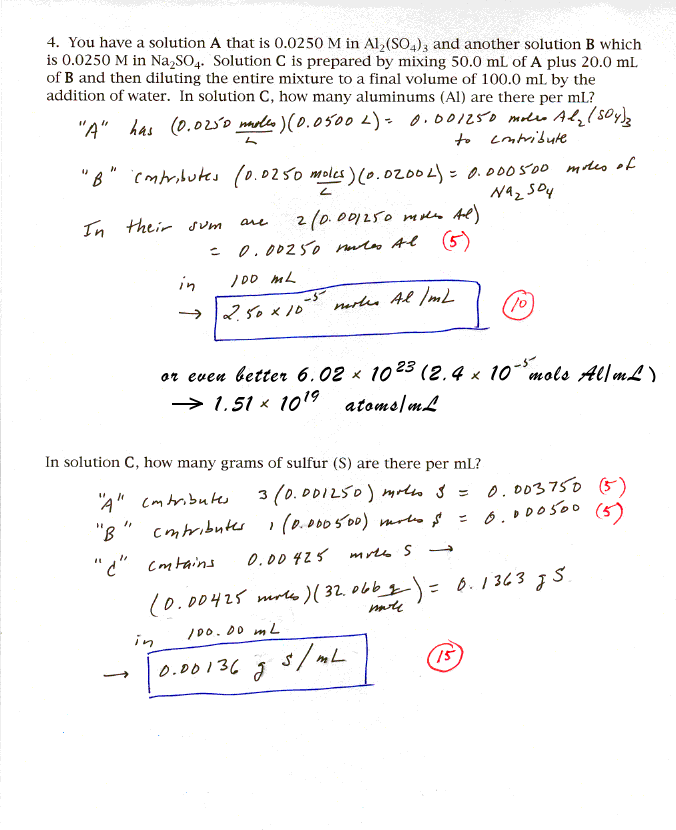 4. You have a solution A that is 0.0250 M in Al₂(SO₄)₃ and another solution B which
is 0.0250 M in Na₂SO₄. Solution C is prepared by mixing 50.0 mL of A plus 20.0 mL
of B and then diluting the entire mixture to a final volume of 100.0 mL by the
addition of water. In solution C, how many aluminums (Al) are there per mL?
"A" has (0.0250 moles/L)(0.0500 L) = 0.001250 moles Al₂(SO₄)₃
to contribute
"B" contributes (0.0250 moles/L)(0.0200L) = 0.000500 moles of
Na₂SO₄
In their sum are 2(0.001250 moles Al)
= 0.00250 moles Al (5)
in 100 mL
→ 2.50 x 10⁻⁵ moles Al/mL 10
or even better 6.02 x 10²³ (2.4 x 10⁻⁵ mols Al/mL)
→ 1.51 x 10¹⁹ atoms/mL
In solution C, how many grams of sulfur (S) are there per mL?
"A" contributes 3(0.001250) moles S = 0.003750 (5)
"B" contributes 1(0.000500) moles S = 0.000500 (5)
"C" contains 0.00425 moles S →
(0.00425 moles)(32.066 g/mole) = 0.1363 g S
in 100.00 mL
→ 0.00136 g S/mL 15